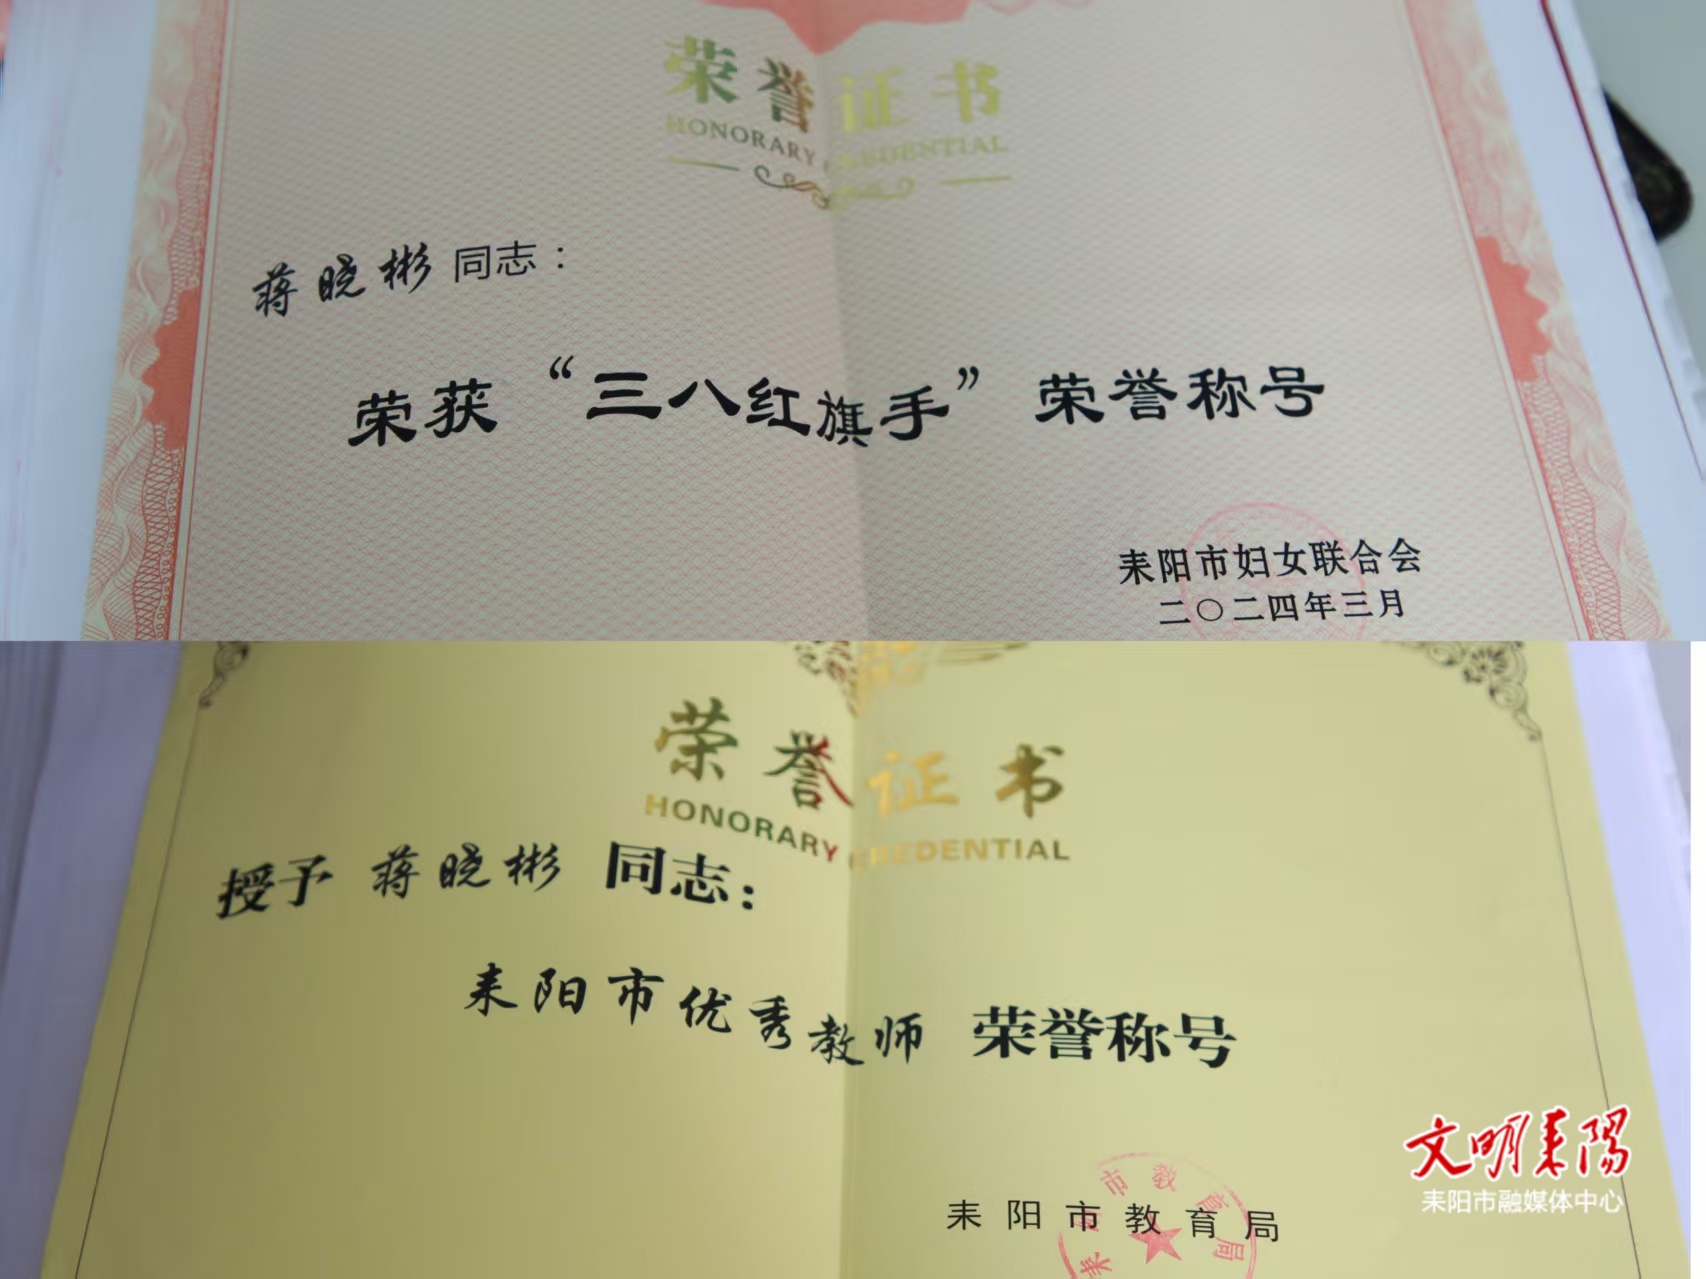 荣誉证书
HONORARY CREDENTIAL
蒋晓彬同志：
荣获“三八红旗手”荣誉称号
耒阳市妇女联合会
二〇二四年三月
荣誉证书
HONORARY CREDENTIAL
授予 蒋晓彬 同志：
耒阳市优秀教师 荣誉称号
耒阳市教育局
市教育局
耒
文明耒陽
耒阳市融媒体中心